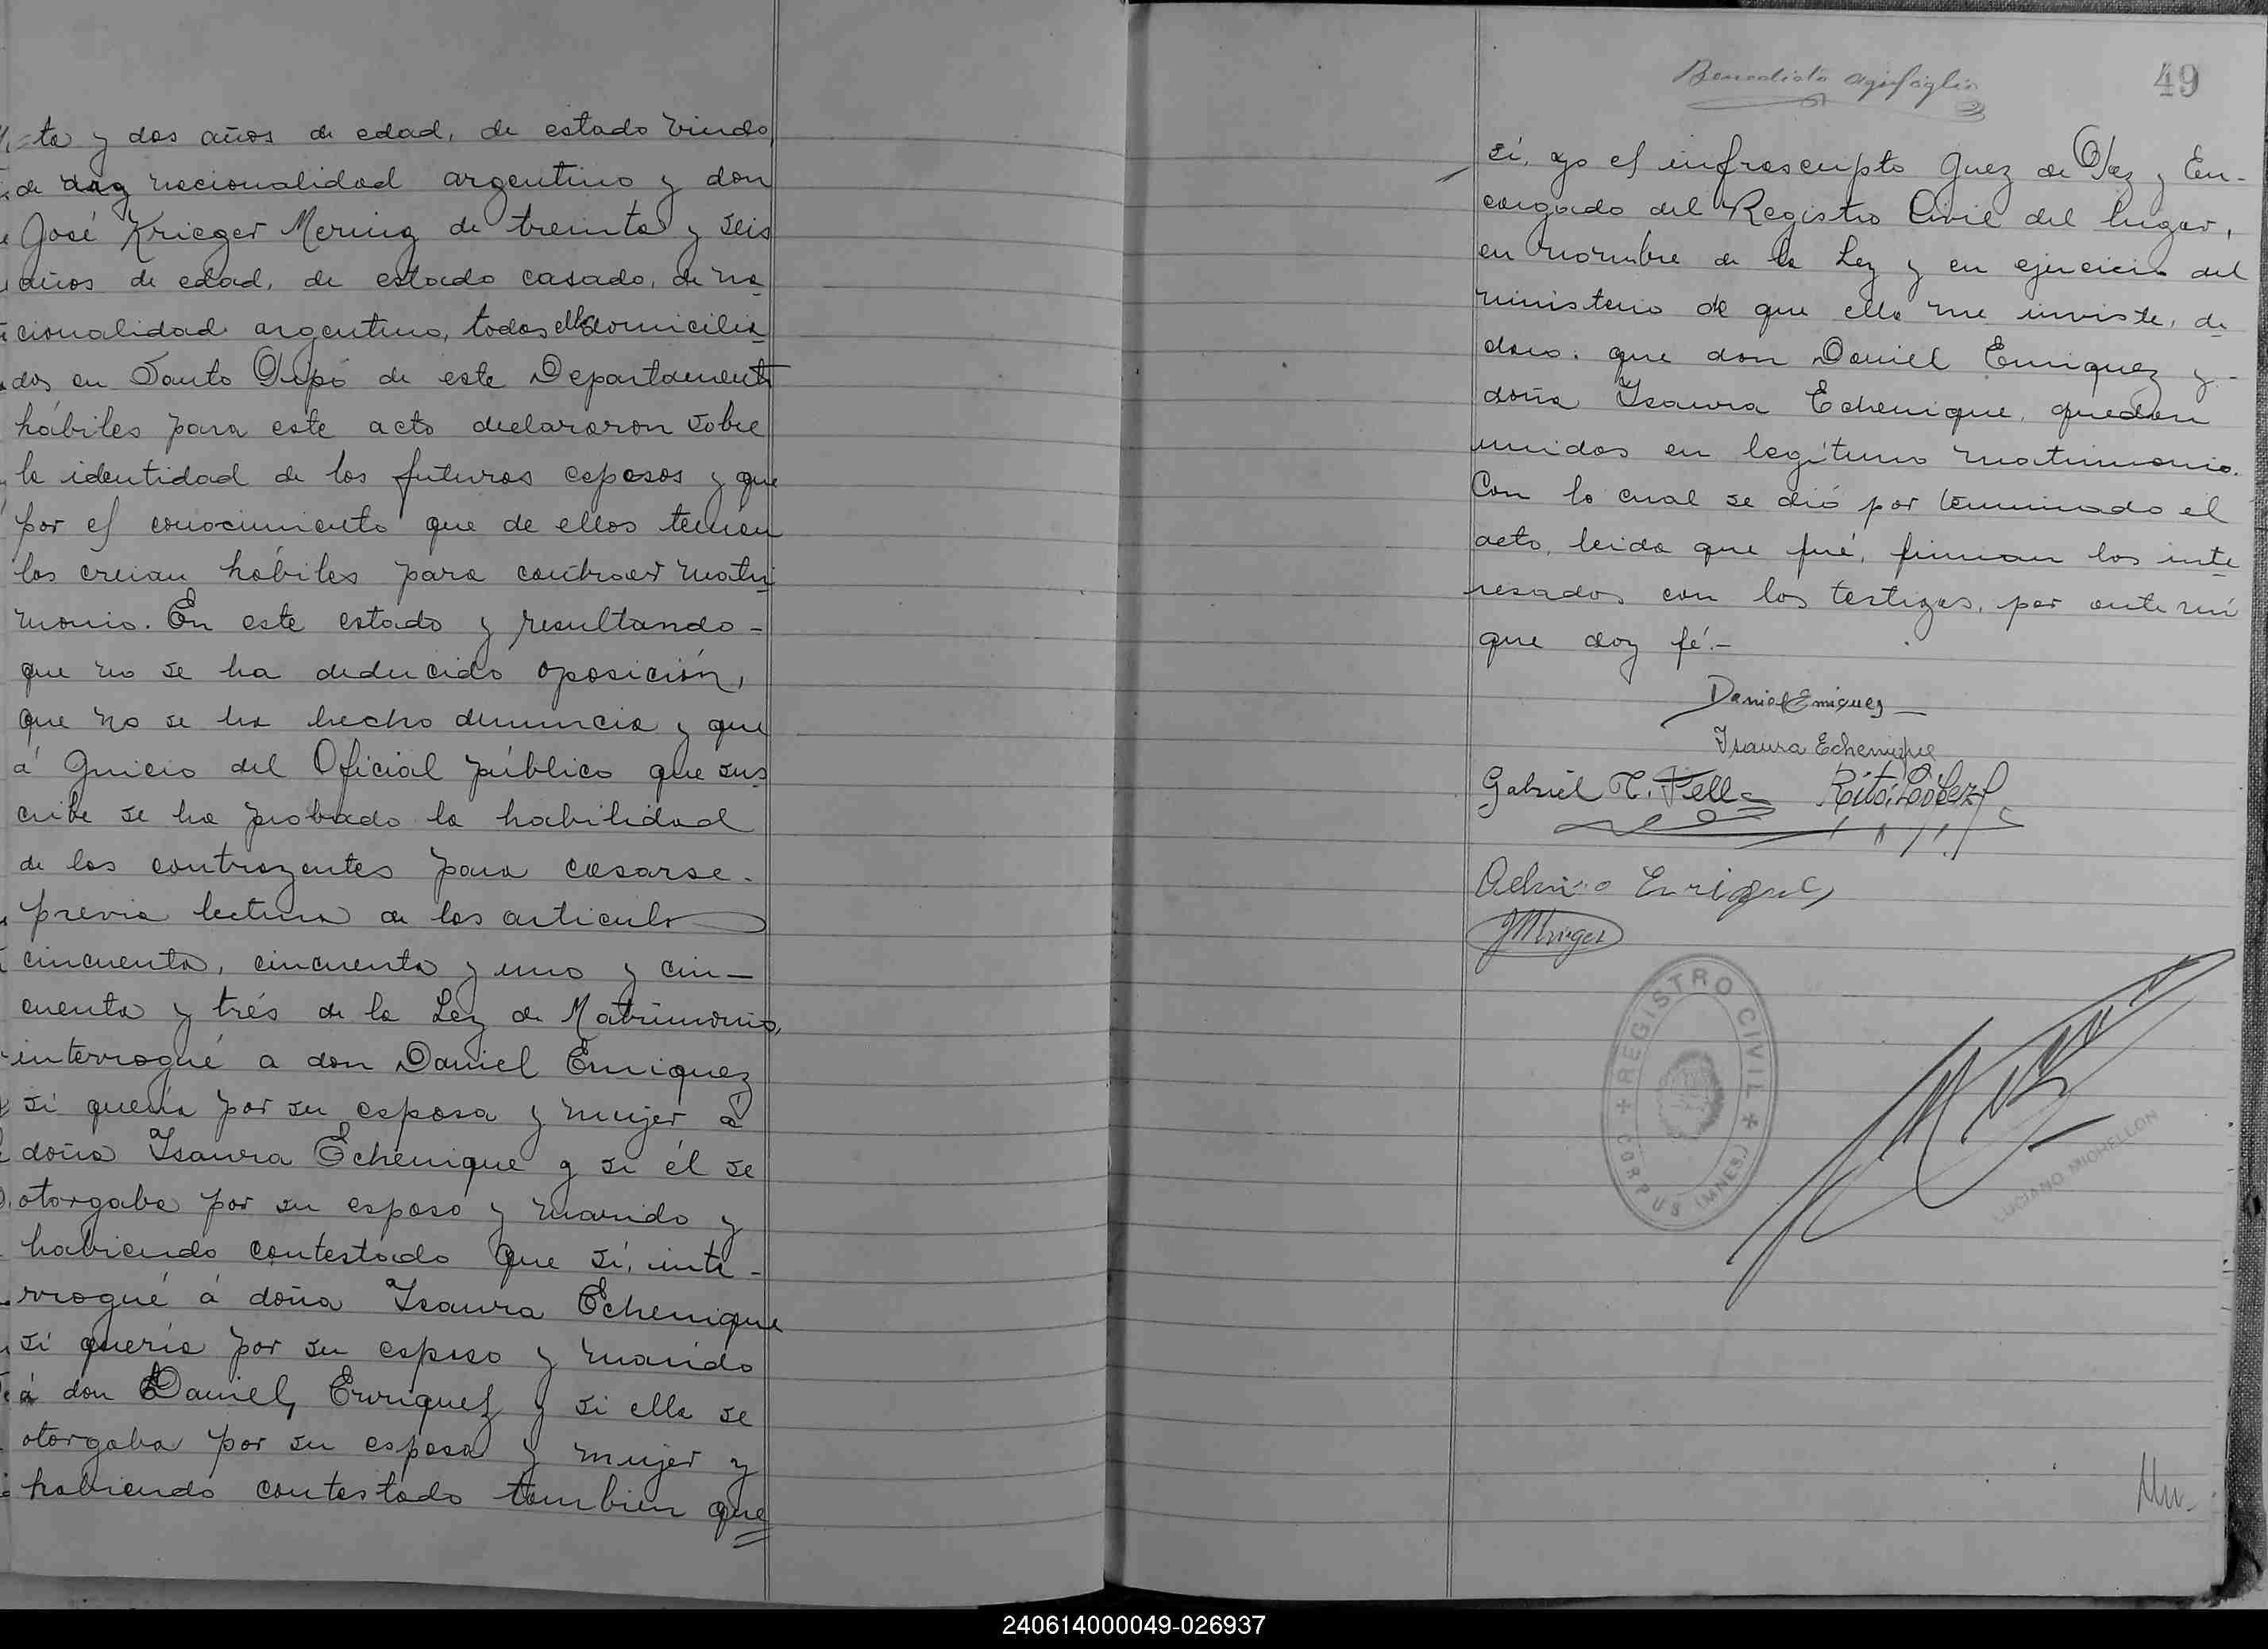 ta y dos años de edad, de estado viudo,
de nacionalidad argentino y don
José Krieger Mering de treinta y seis
años de edad, de estado casado, de na
cionalidad argentino, todos ellos domicilia
dos en Santo Pipó de este Departamento
hábiles para este acto declararon sobre
la identidad de los futuros esposos y que
por el conocimiento que de ellos tenían
los creian hábiles para contraer matri
monio. En este estado y resultando -
que no se ha deducido oposición,
que no se ha hecho denuncia y que
á Juicio del Oficial público que sus
cribe se ha probado la habilidad
de los contrayentes para casarse.
previa lectura de los articulo
cincuenta, cincuenta y uno y cin-
cuenta y trés de la Ley de Matrimonio,
interrogué a don Daniel Enriquez
si quería por su esposa y mujer á
doña Isaura Echenique y si él se
otorgaba por su esposo y marido y
habiendo contestado que sí, inte-
rrogué á doña Isaura Echenique
si quería por su esposo y marido
á don Daniel Enriquez y si ella se
otorgaba por su esposa y mujer y
habiendo contestado tambien que
49
sí, yo el infrascripto Juez de Paz y En-
cargado del Registro Civil del lugar,
en nombre de la Ley y en ejercicio del
ministerio de que ella me inviste, de
claro: que don Daniel Enriquez y -
doña Isaura Echenique, quedan
unidos en legítimo matrimonio.
Con lo cual se dió por terminado el
acto, leida que fué, firman los inte
resados con los testigos, por ante mí
que doy fé.-
Daniel Enriquez
Isaura Echenique
Gabriel T. Fell Rito López
Enriquez
REGISTRO CIVIL
CORPUS (MNES.)
LUCIANO MICHELLON
240614000049-026937